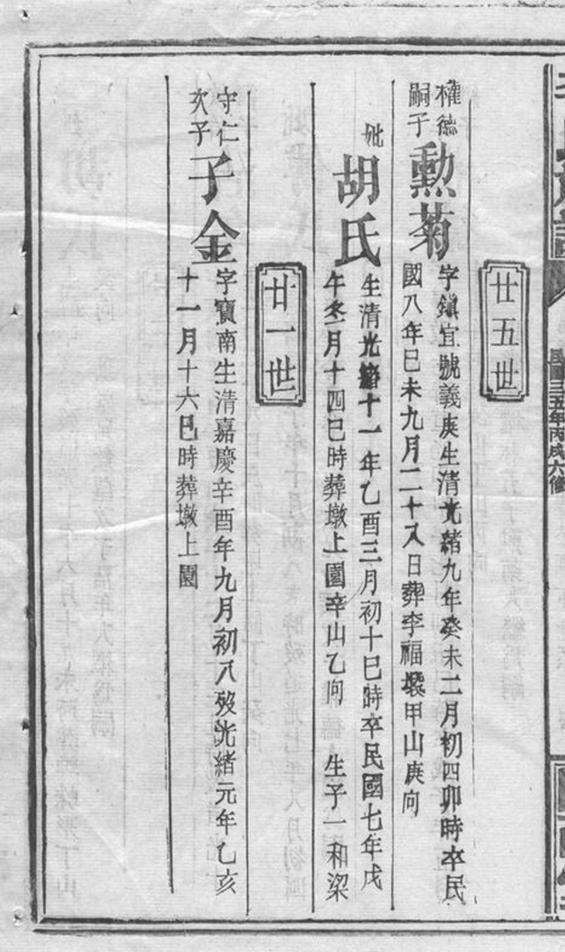 民國三五年丙戌六修
廿五世
權德
嗣子
勲菊
字鎮宜號義庚生清光緒九年癸未二月初四卯時卒民
國八年巳未九月二十八日葬李福塅甲山庚向
妣
胡氏
生清光緒十一年乙酉三月初十巳時卒民國七年戊
午冬月十四巳時葬墩上園辛山乙向 生子一和梁
廿一世
守仁
次子
子金
字寶南生清嘉慶辛酉年九月初八歿光緒元年乙亥
十一月十六巳時葬墩上園